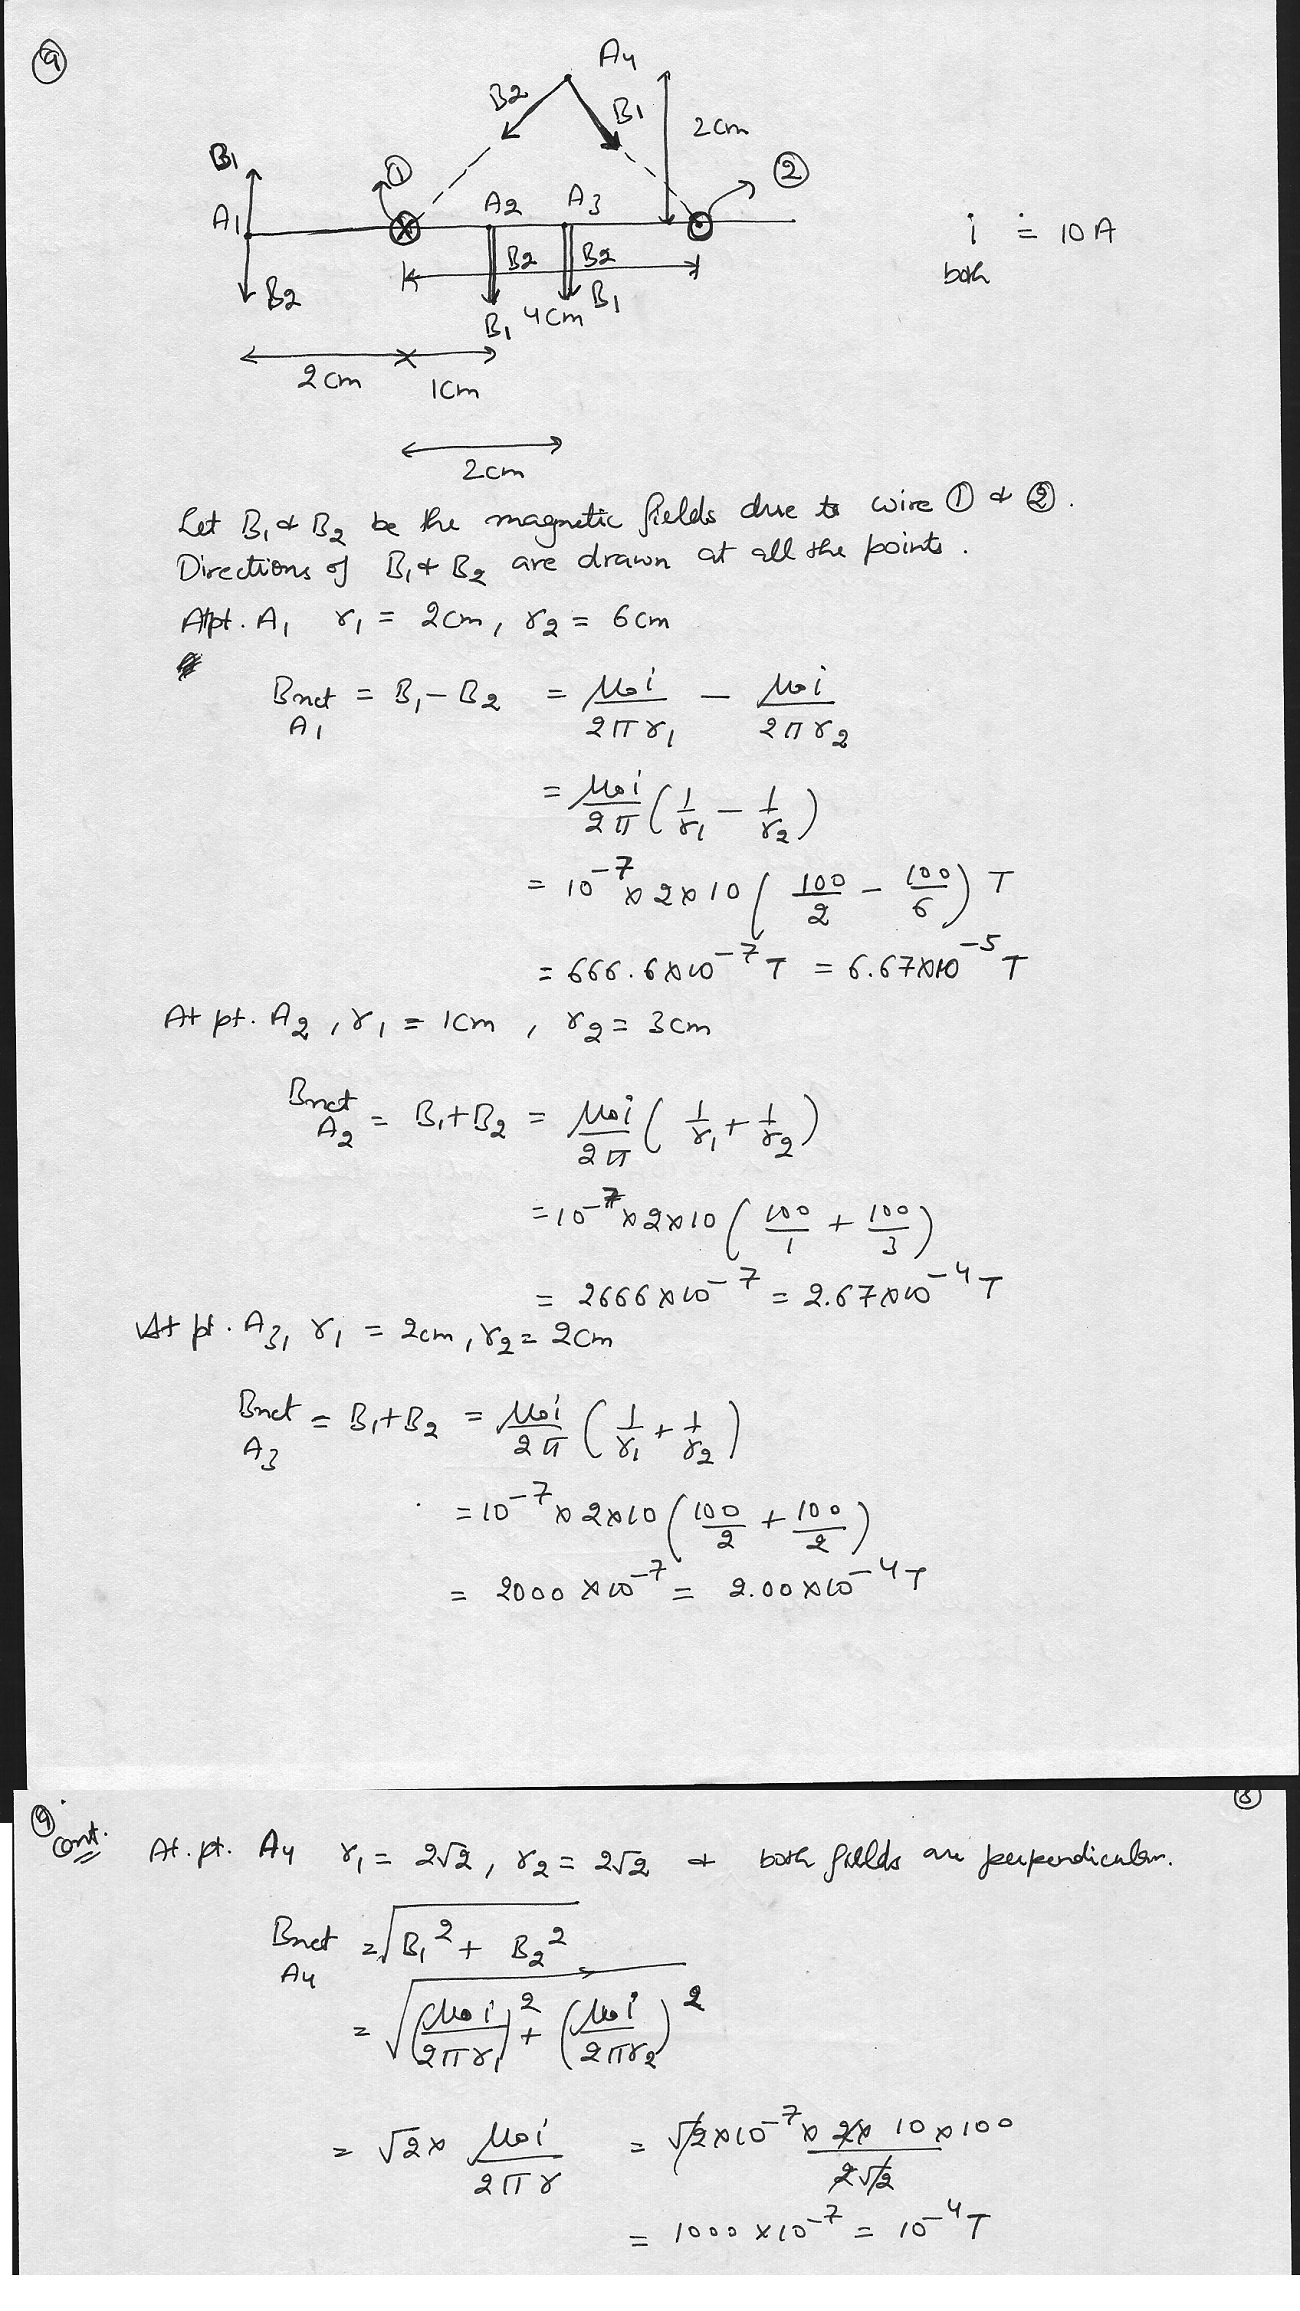 9
A4
B2
B1
2cm
B1
①
②
A1
A2
A3
i = 10A
both
B2
B2
B2
B1
B1
4cm
2cm
1cm
2cm
Let B1 & B2 be the magnetic fields due to wire ① & ②.
Directions of B1 & B2 are drawn at all the points.
At pt. A1 r1 = 2cm, r2 = 6cm
Bnet A1 = B1 - B2 = μ0i/2πr1 - μ0i/2πr2
= μ0i/2π (1/r1 - 1/r2)
= 10^-7 × 2×10 (100/2 - 100/6) T
= 666.6×10^-7 T = 6.67×10^-5 T
At pt. A2, r1 = 1cm, r2 = 3cm
Bnet A2 = B1+B2 = μ0i/2π (1/r1 + 1/r2)
= 10^-7 × 2×10 (100/1 + 100/3)
= 2666×10^-7 = 2.67×10^-4 T
At pt. A3, r1 = 2cm, r2 = 2cm
Bnet A3 = B1+B2 = μ0i/2π (1/r1 + 1/r2)
= 10^-7 × 2×10 (100/2 + 100/2)
= 2000×10^-7 = 2.00×10^-4 T
9 cont.
At. pt. A4 r1 = 2√2, r2 = 2√2 & both fields are perpendicular.
Bnet A4 = √(B1^2 + B2^2)
= √((μ0i/2πr1)^2 + (μ0i/2πr2)^2)
= √2 × μ0i/2πr = √2×10^-7 × 2×10×100/2√2
= 1000×10^-7 = 10^-4 T